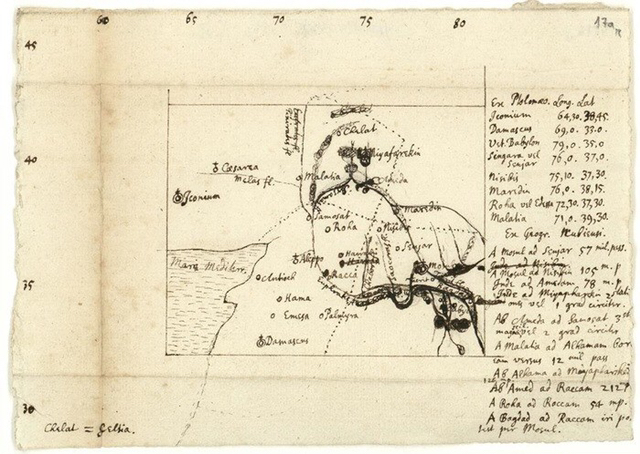 60 65 70 75 80
179
45
40
35
30
Ex Ptolomæo. Long. Lat
Jconium 64,30. 38,45.
Damascus 69,0. 33.0.
Vet. Babylon 79,0. 35.0
Singara vel Sinjar 76,0. 37,0.
Nisibis 75,10. 37,30.
Maridin 76,0. 38,15.
Roha vel Edessa 72,30. 37,30.
Malatia 71,0. 39,30.
Ex Geogr. Nubiensi.
A Mosul ad Senjar 57 mil. pass.
A Mosul ad Nisibin 105 m. p
Inde ad Amedam 78 m. p.
Inde ad Miyapharekin 2
vel 1 grad circiter.
Ab Ameda ad Samosat 3
vel 2 grad circiter
A Malatia ad Alhamam
versus 12 mil pass
Ab Alhama ad Miyapharekin
Ab Amed ad Raccam 212
A Roha ad Raccam 54 mp.
A Bagdad ad Raccam iri po
test per Mosul.
Chelat
Miyafarekin
Cæsarea
Melas fl.
Malatia
Jconium
Samosat
Maridin
Roha
Nisibis
Senjar
Mare Mediterr.
Aleppo
Harran
Racca
Mo
Antioch
Hama
Emesa
Palmyra
Damascus
Chelat =